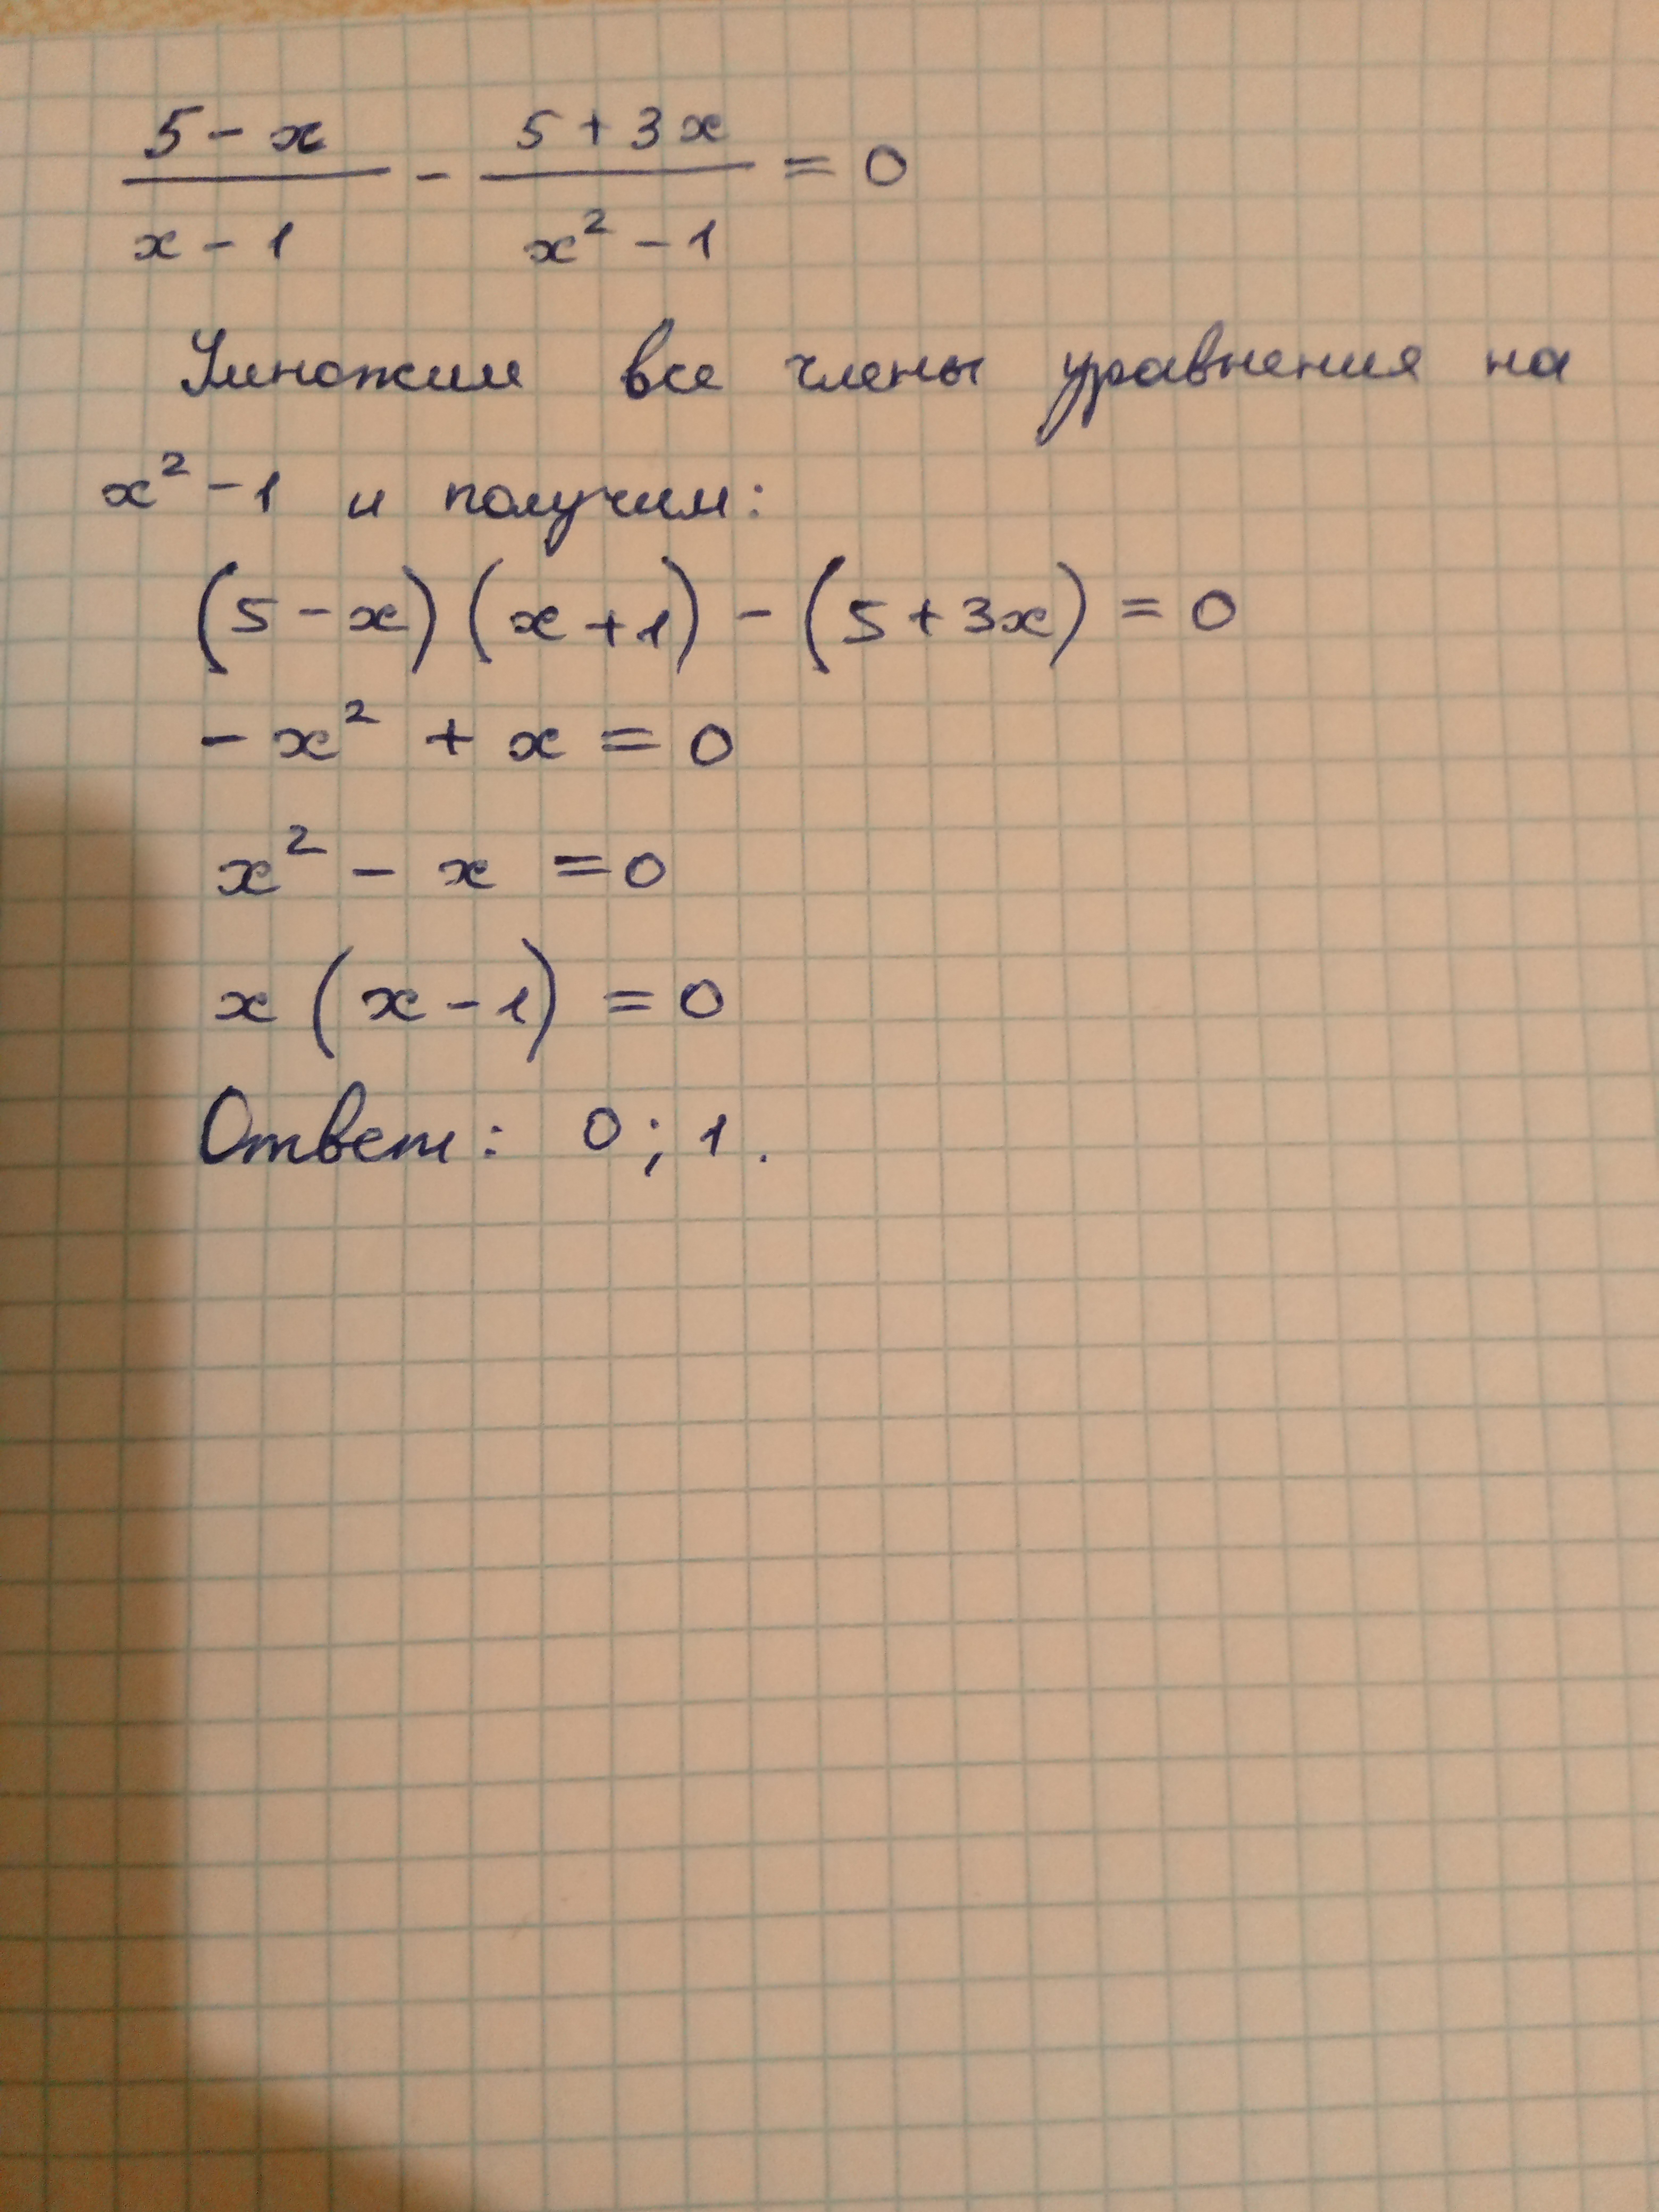 (5 - x)/(x - 1) - (5 + 3x)/(x² - 1) = 0
Умножим все члены уравнения на
x² - 1 и получим:
(5 - x)(x + 1) - (5 + 3x) = 0
- x² + x = 0
x² - x = 0
x(x - 1) = 0
Ответ: 0; 1.